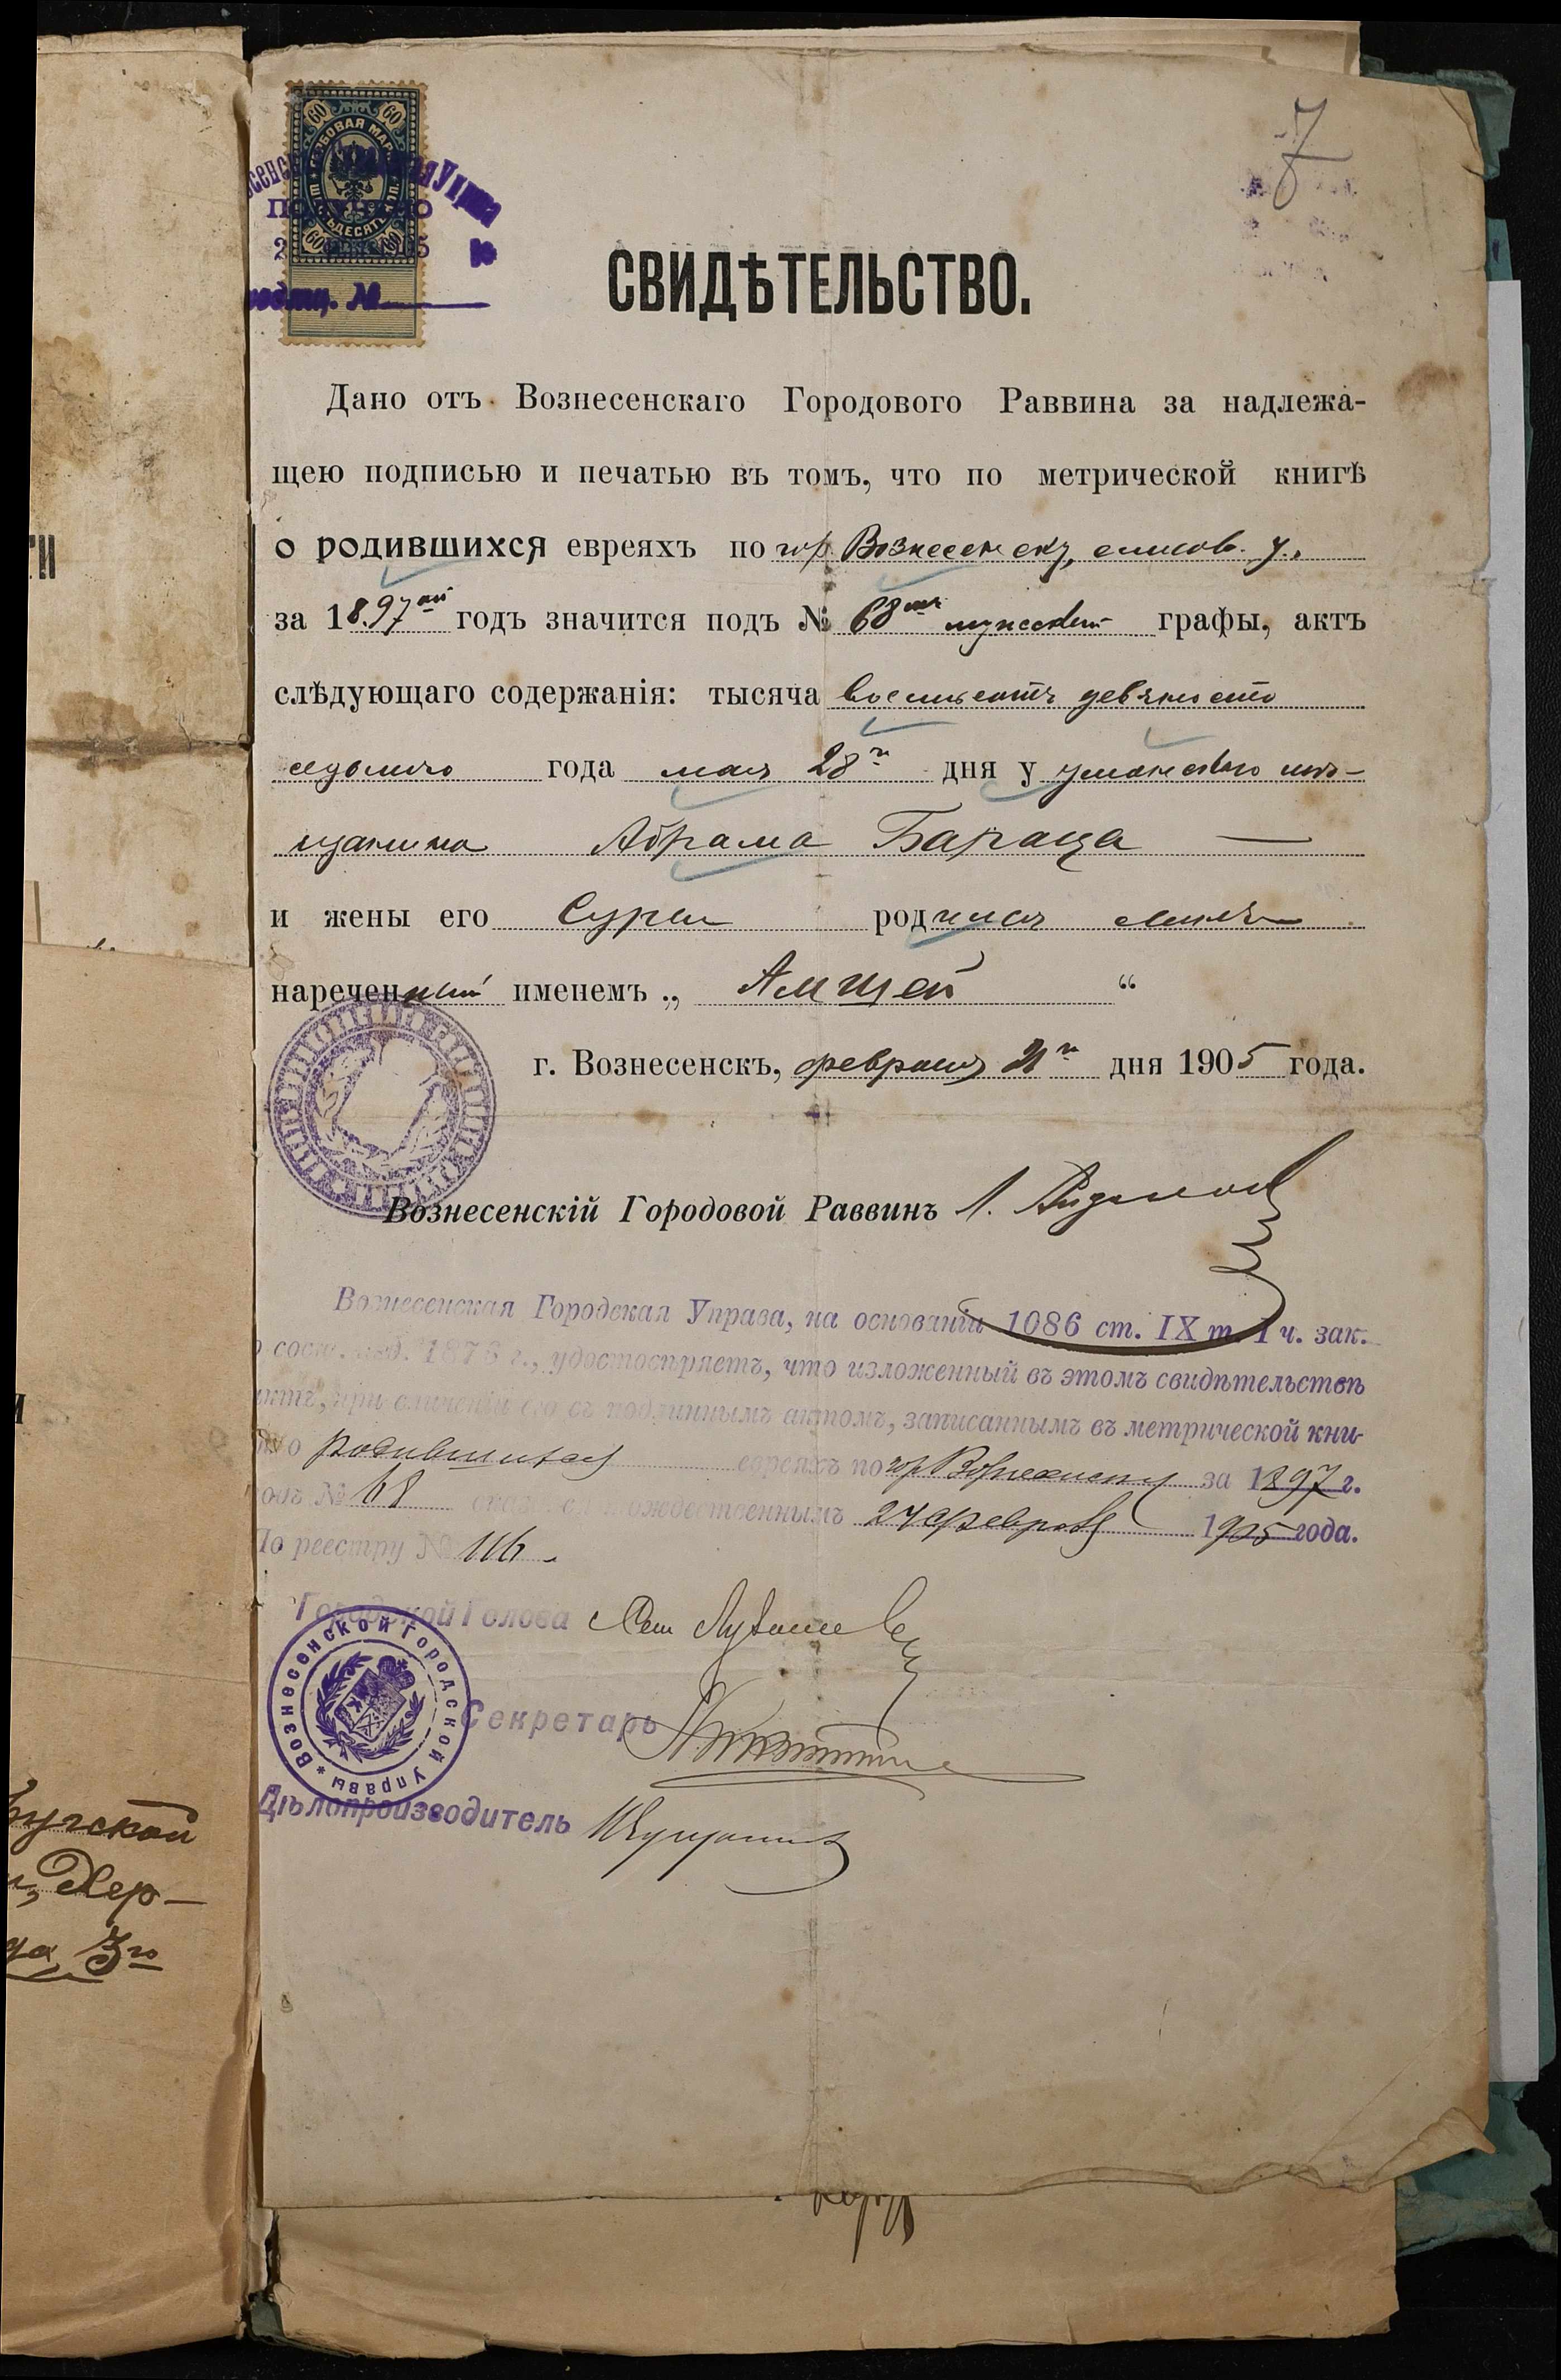 7
60 60
ГЕРБОВАЯ МАР
60 60
СВИДѢТЕЛЬСТВО.
Дано отъ Вознесенскаго Городового Раввина за надлежа-
щею подписью и печатью въ томъ, что по метрической книгѣ
о родившихся евреяхъ по гор. Вознесенску, елисов. у.,
за 1897ый годъ значится подъ № 68мъ мужской графы, актъ
слѣдующаго содержанія: тысяча восемьсотъ девяносто
седьмого года мая 28го дня у уманскаго мѣ-
щанина Абрама Бараца —
и жены его Суры родился сынъ
нареченный именемъ „ Амшей “
г. Вознесенскъ, февраля 21го дня 1905 года.
Вознесенскій Городовой Раввинъ Л.
Вознесенская Городская Управа, на основаніи 1086 ст. IX т. 1 ч. зак.
о сост. изд. 1876 г., удостовѣряетъ, что изложенный въ этомъ свидѣтельствѣ
актъ, при сличеніи его съ подлиннымъ актомъ, записаннымъ въ метрической кни-
о родившихся евреяхъ по гор Вознесенску за 1897 г.
подъ № 68 оказался тождественнымъ 24 февраля 1905 года.
По реестру № 116.
Городской Голова
Секретарь
Дѣлопроизводитель
Вознесенской Городской Управы
бугской
Хер-
да 3го